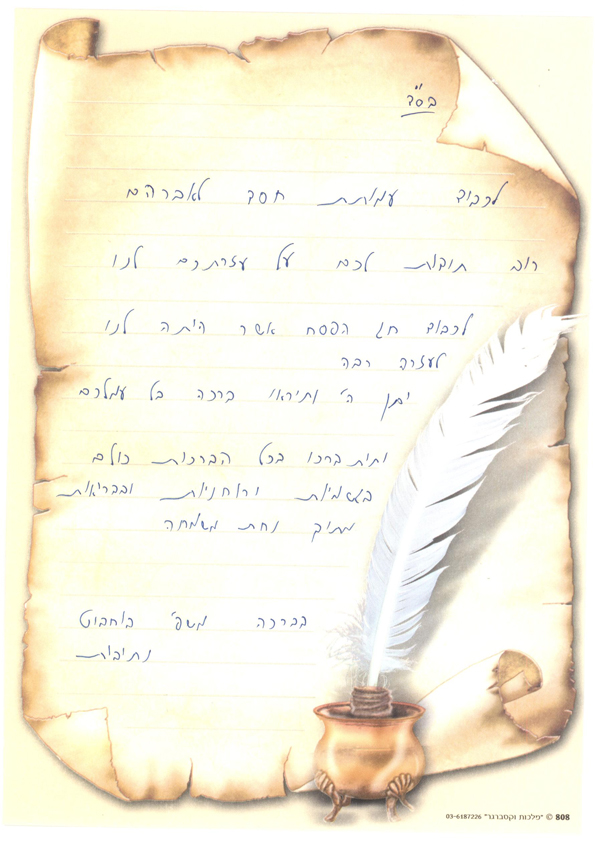 בס"ד
לכבוד עמותת חסד לאברהם
רוב תובות לכם על עזרתכם לנו
לכבוד חג הפסח אשר היתה לנו
לעזרה רבה
יתן ה' ותיראו ברכה בל עמלכם
ותית ברכו בכל הברכות כולם
בגשמיות ורוחניות ובבריאות
מתוך נחת משמחה
בברכה משפ' בוחבוט
נתיבות
808 © "פלכות וקסברגר" 03-6187226